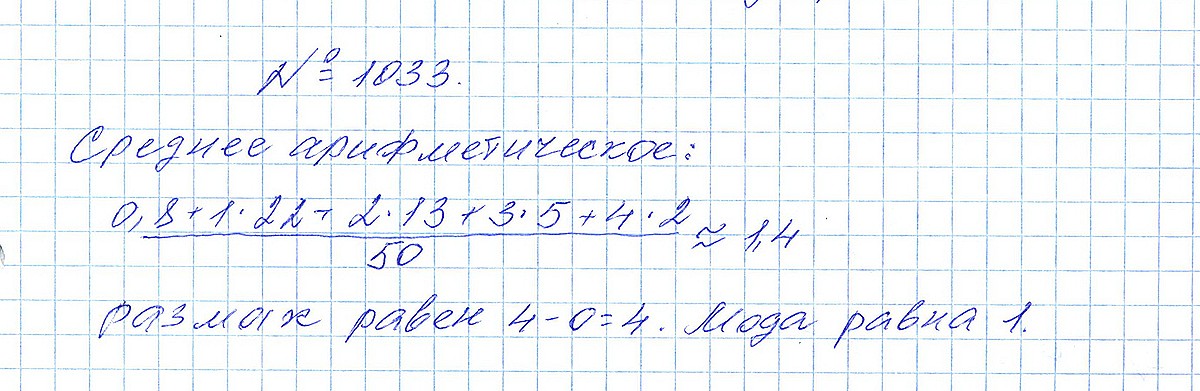 № 1033.
Среднее арифметическое:
0,8+1·22+2·13+3·5+4·2
50
≈ 1,4
размах равен 4-0=4. Мода равна 1.